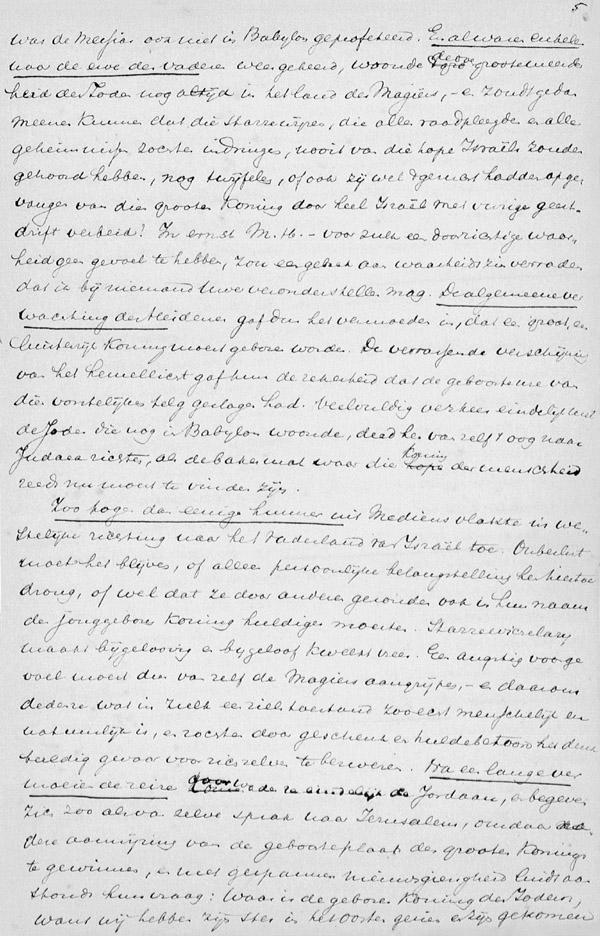 5
was de Messias ook niet in Babylon geprofeteerd. En al waren enkelen
naar de erve der vaderen weergekeerd, woonde de grootere meerder
heid der Joden nog altijd in het land der Magiërs, - en zoudt ge dan
meenen kunnen dat die starrewijzen, die alle raadpleegden en alle
geheimnissen zochten in dringen, nooit van die hope Israëls zouden
gehoord hebben, nog twijfelen, of ook zij wel gemerkt hadden
van dien grooten Koning door heel Israël met vurige geest-
drift verbeid? In ernst M. H. - voor zulk een doorzichtige waar
heid geen gevoel te hebben, zou een gebrek aan waarheidszin verraden
dat ik bij niemand Uwer veronderstellen mag. De algemeene ver
wachting der Heidenen gaf hun het vermoeden in, dat er groot, een
luisterrijk Koning moest geboren worden. De verrassende verschijning
van het hemellicht gaf hun de zekerheid dat de geboorteure van
dien vorstelijken telg geslagen had. Veelvuldig verkeer eindelijk met
de Joden die nog in Babylon woonden, deed hen van zelf 't oog naar
Judaea richten, als de bakermat waar die Koning der menschheid
reeds nu moest te vinden zijn.
Zoo togen dan eenigen hunner uit Mediens vlakte in we-
stelijke richting naar het Vaderland van Israël toe. Onbeslist
moet het blijven, of alleen persoonlijke belangstelling hen hiertoe
drong, of wel dat ze door anderen gezonden ook in hun naam
de jonggeboren Koning huldigen moesten. Starrewichelarij
maakt bijgeloovig en bijgeloof kweekt vrees. Een angstig voorge
voel moest dus van zelf de Magiërs aangrijpen, - en daarom
deden ze wat in zulk een zielstoestand zoo echt menschelijk en
natuurlijk is, en zochten door geschenk en huldebetoon het
gevaar voor zich zelve te bezweren. Na een lange ver
moeiende reize door waden ze eindelijk de Jordaan, en begeven
zich zoo als van zelve sprak naar Jerusalem, om daar
aanwijzing van de geboorteplaats des grooten Konings
te gewinnen, en met gespannen nieuwsgierigheid luidt aan
stonds hun vraag: Waar is de geboren Koning der Joden,
want wij hebben zijn ster in het oosten gezien en zijn gekomen